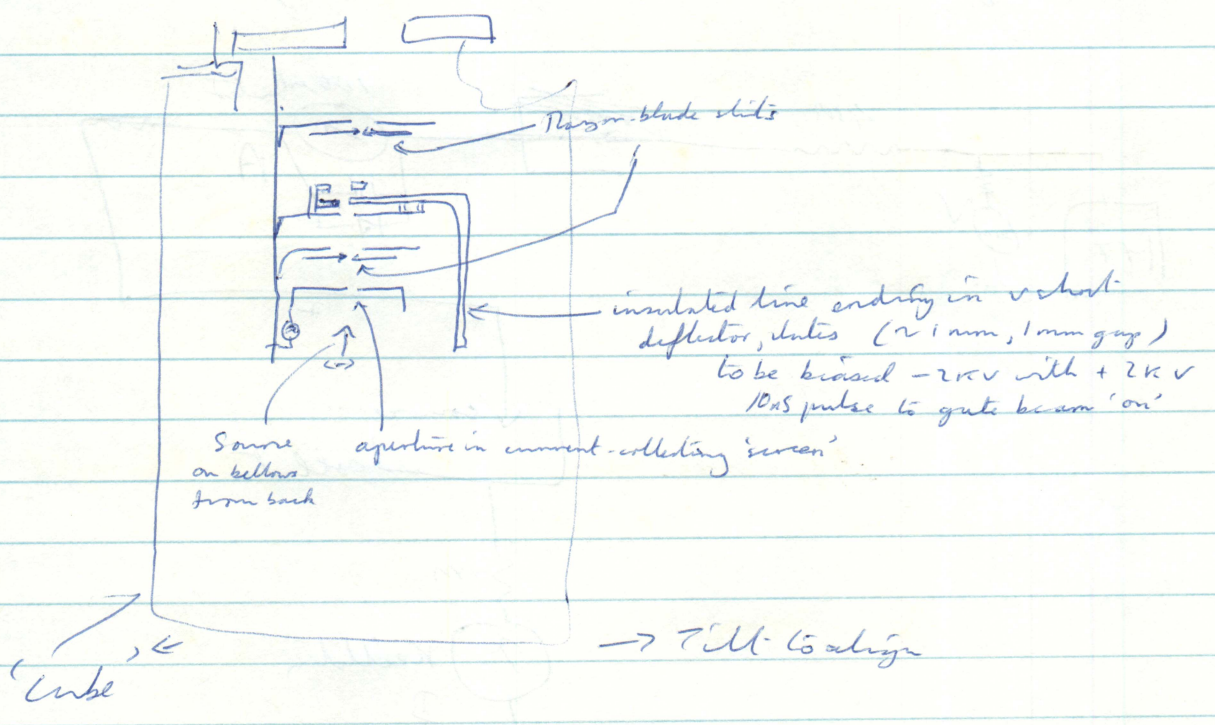 Razor-blade slits
insulated line ending in v short
deflector plates (~ 1 mm, 1 mm gap)
to be biased - 2 KV with + 2 KV
10 nS pulse to gate beam 'on'
Source
on bellows
from back
aperture in current-collecting 'screen'
→ Tilt to align
'Cube'